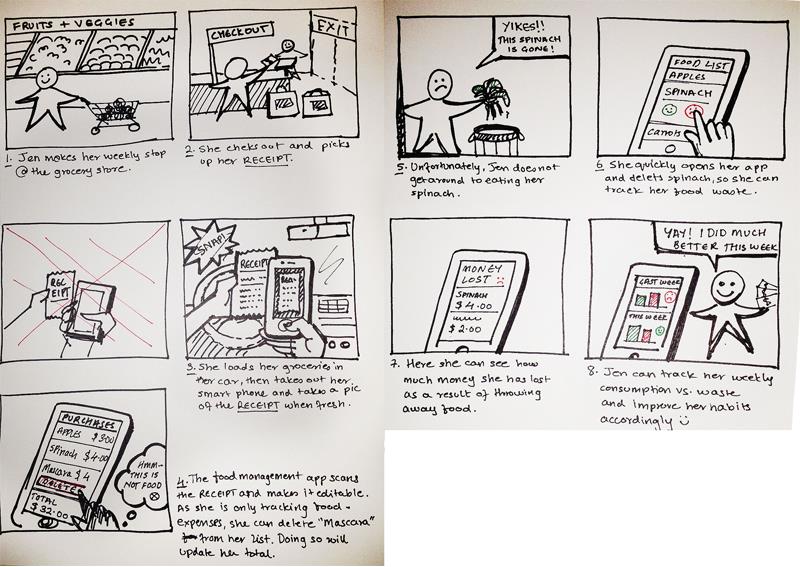 FRUITS + VEGGIES
1. Jen makes her weekly stop
@ the grocery store.
CHECKOUT
EXIT
2. She cheks out and picks
up her RECEIPT.
REC
EIPT
SNAP!
RECEIPT
3. She loads her groceries in
her car, then takes out her
smart phone and takes a pic
of the RECEIPT when fresh.
PURCHASES
APPLES $3.00
Spinach $4.00
Mascara $4
DELETE
TOTAL
$32.00
HMM-
THIS IS
NOT FOOD
4. The food management app scans
the RECEIPT and makes it editable.
As she is only tracking food-
expenses, she can delete "Mascara"
from her list. Doing so will
update her total.
YIKES!!
THIS SPINACH
IS GONE!
5. Unfortunately, Jen does not
get around to eating her
spinach.
FOOD LIST
APPLES
SPINACH
Carrots
6. She quickly opens her app
and deletes spinach, so she can
track her food waste.
MONEY
LOST
SPINACH
$4.00
$2.00
7. Here she can see how
much money she has lost
as a result of throwing
away food.
YAY! I DID MUCH
BETTER THIS WEEK
LAST WEEK
THIS WEEK
8. Jen can track her weekly
consumption vs. waste
and improve her habits
accordingly